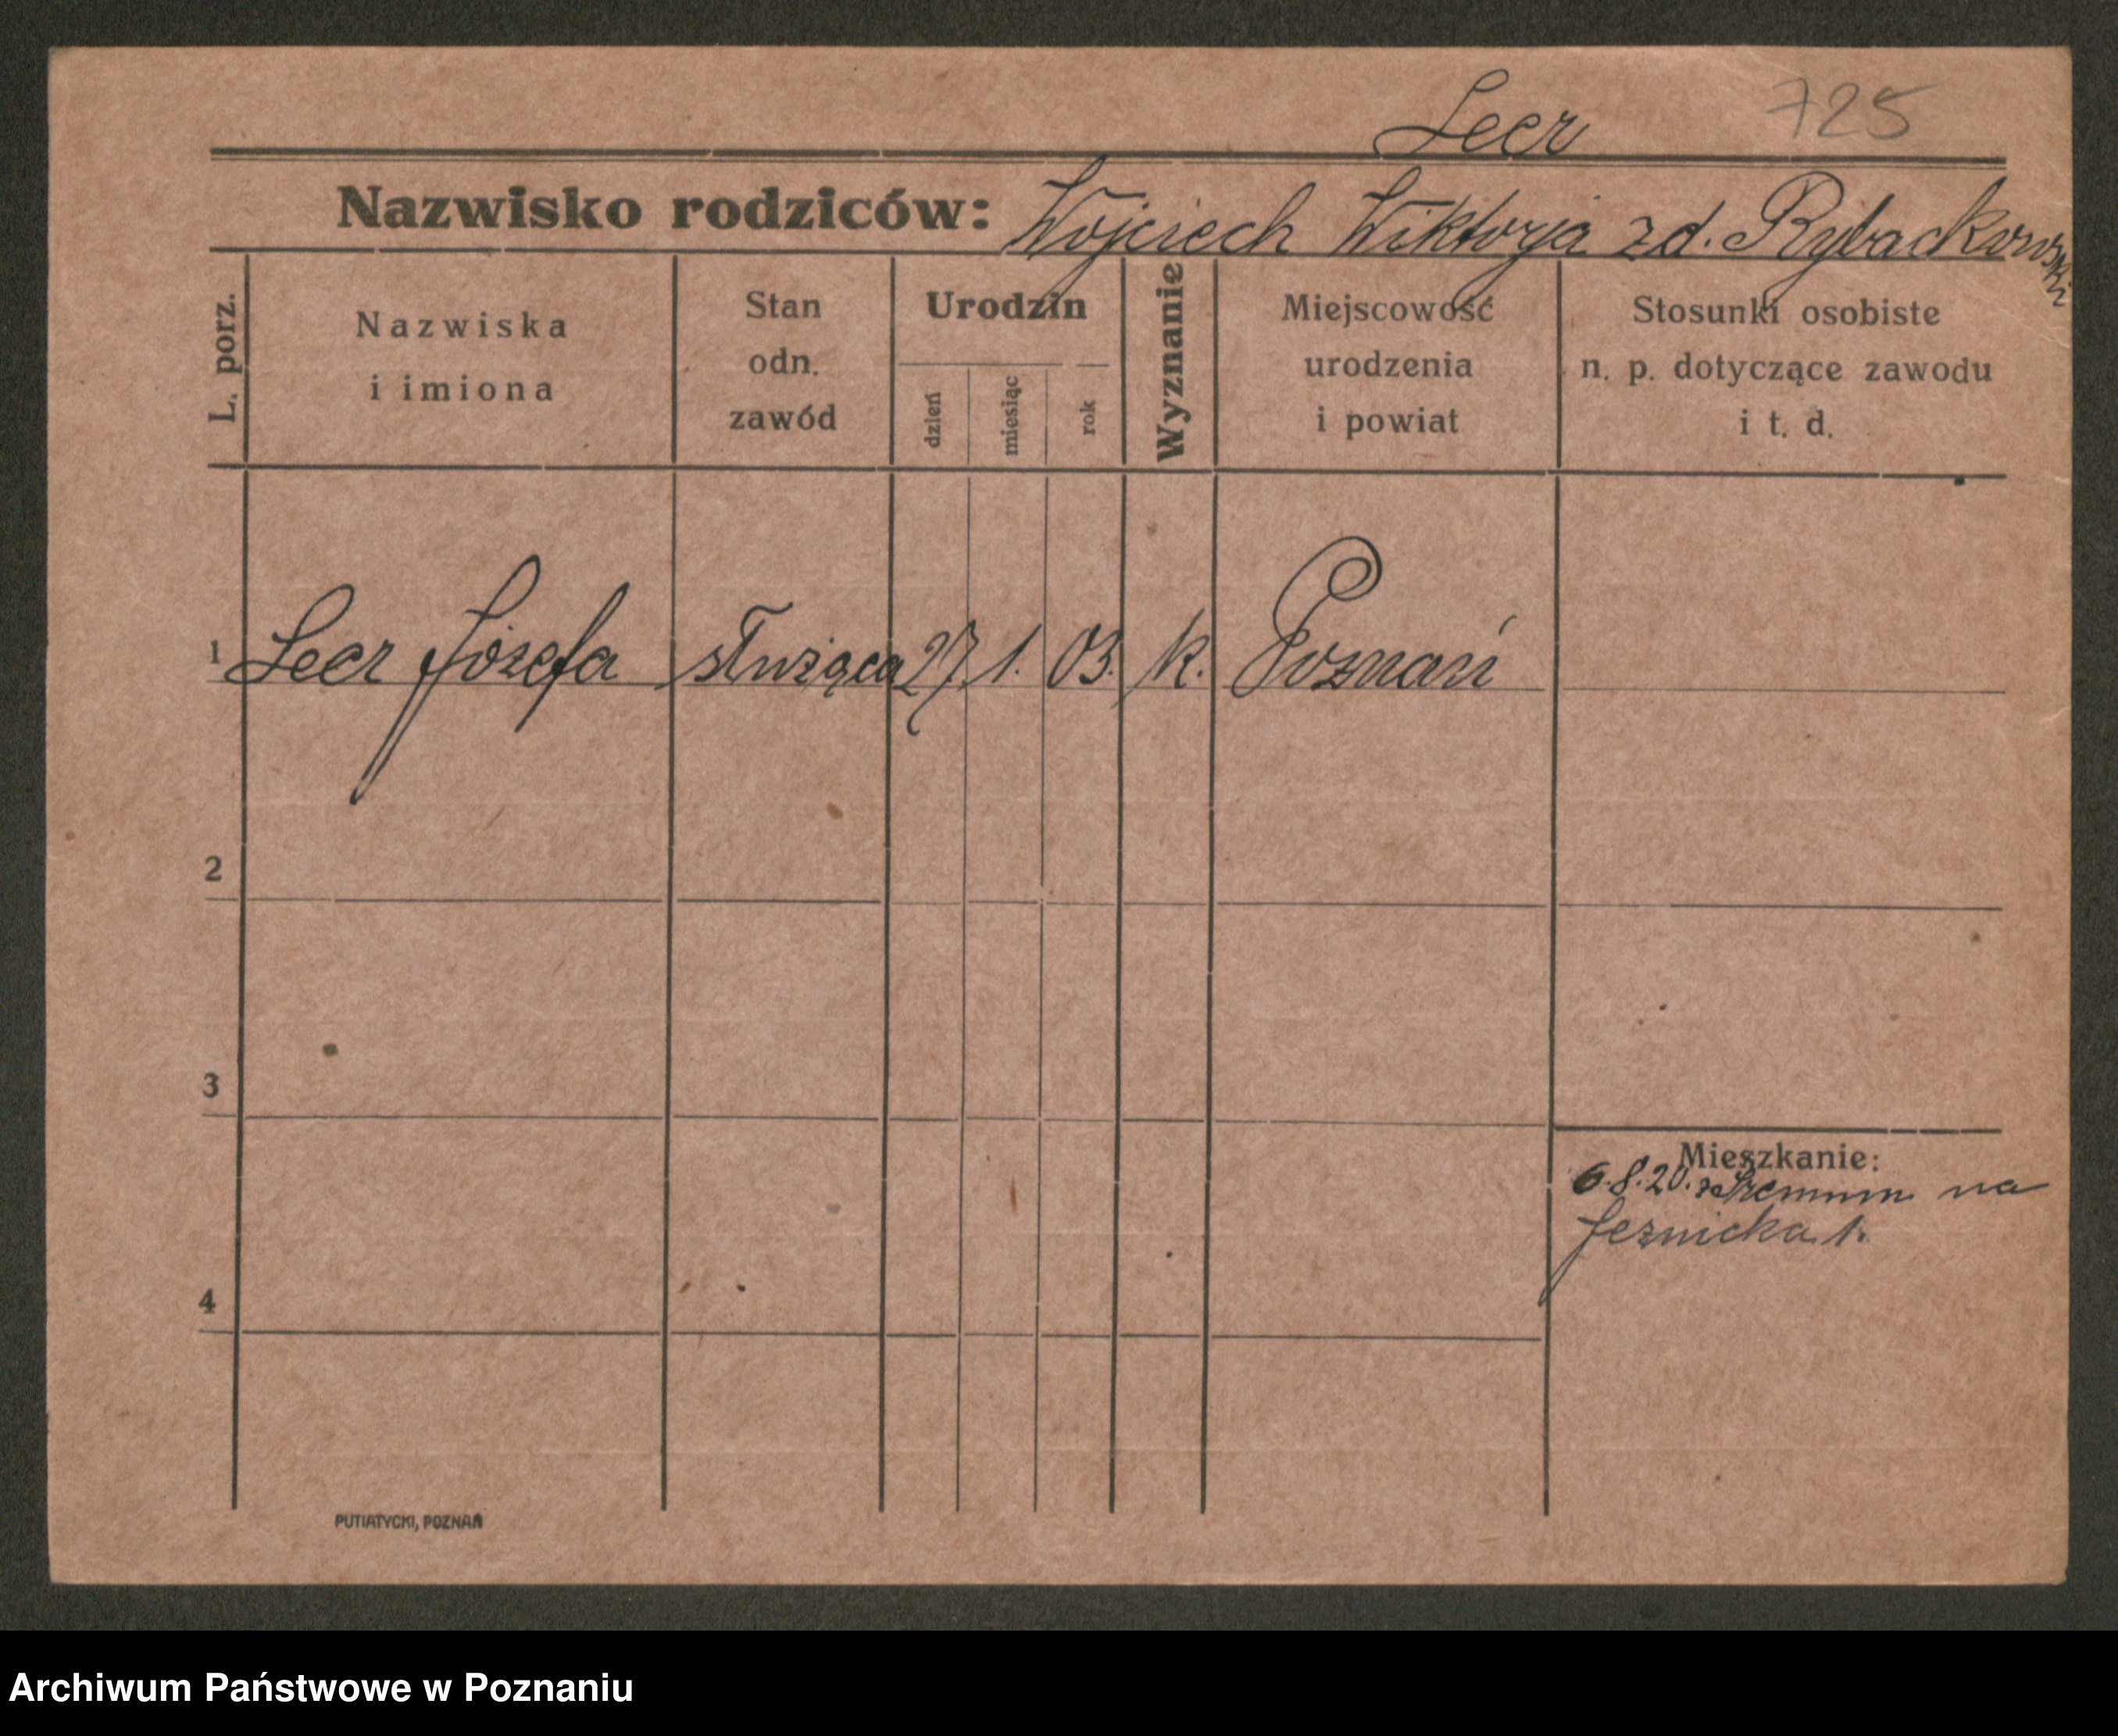 Leer 725
Nazwisko rodziców: Wojciech Wiktorja zd. Rybackowski
L. porz.
Nazwiska
i imiona
Stan
odn.
zawód
Urodzin
dzień
miesiąc
rok
Wyznanie
Miejscowość
urodzenia
i powiat
Stosunki osobiste
n. p. dotyczące zawodu
i t. d.
1 Leer Józefa służąca 27. 1. 03. k. Poznań
2
3
4
Mieszkanie:
6.8.20. na
1.
PUTIATYCKI, POZNAŃ
Archiwum Państwowe w Poznaniu